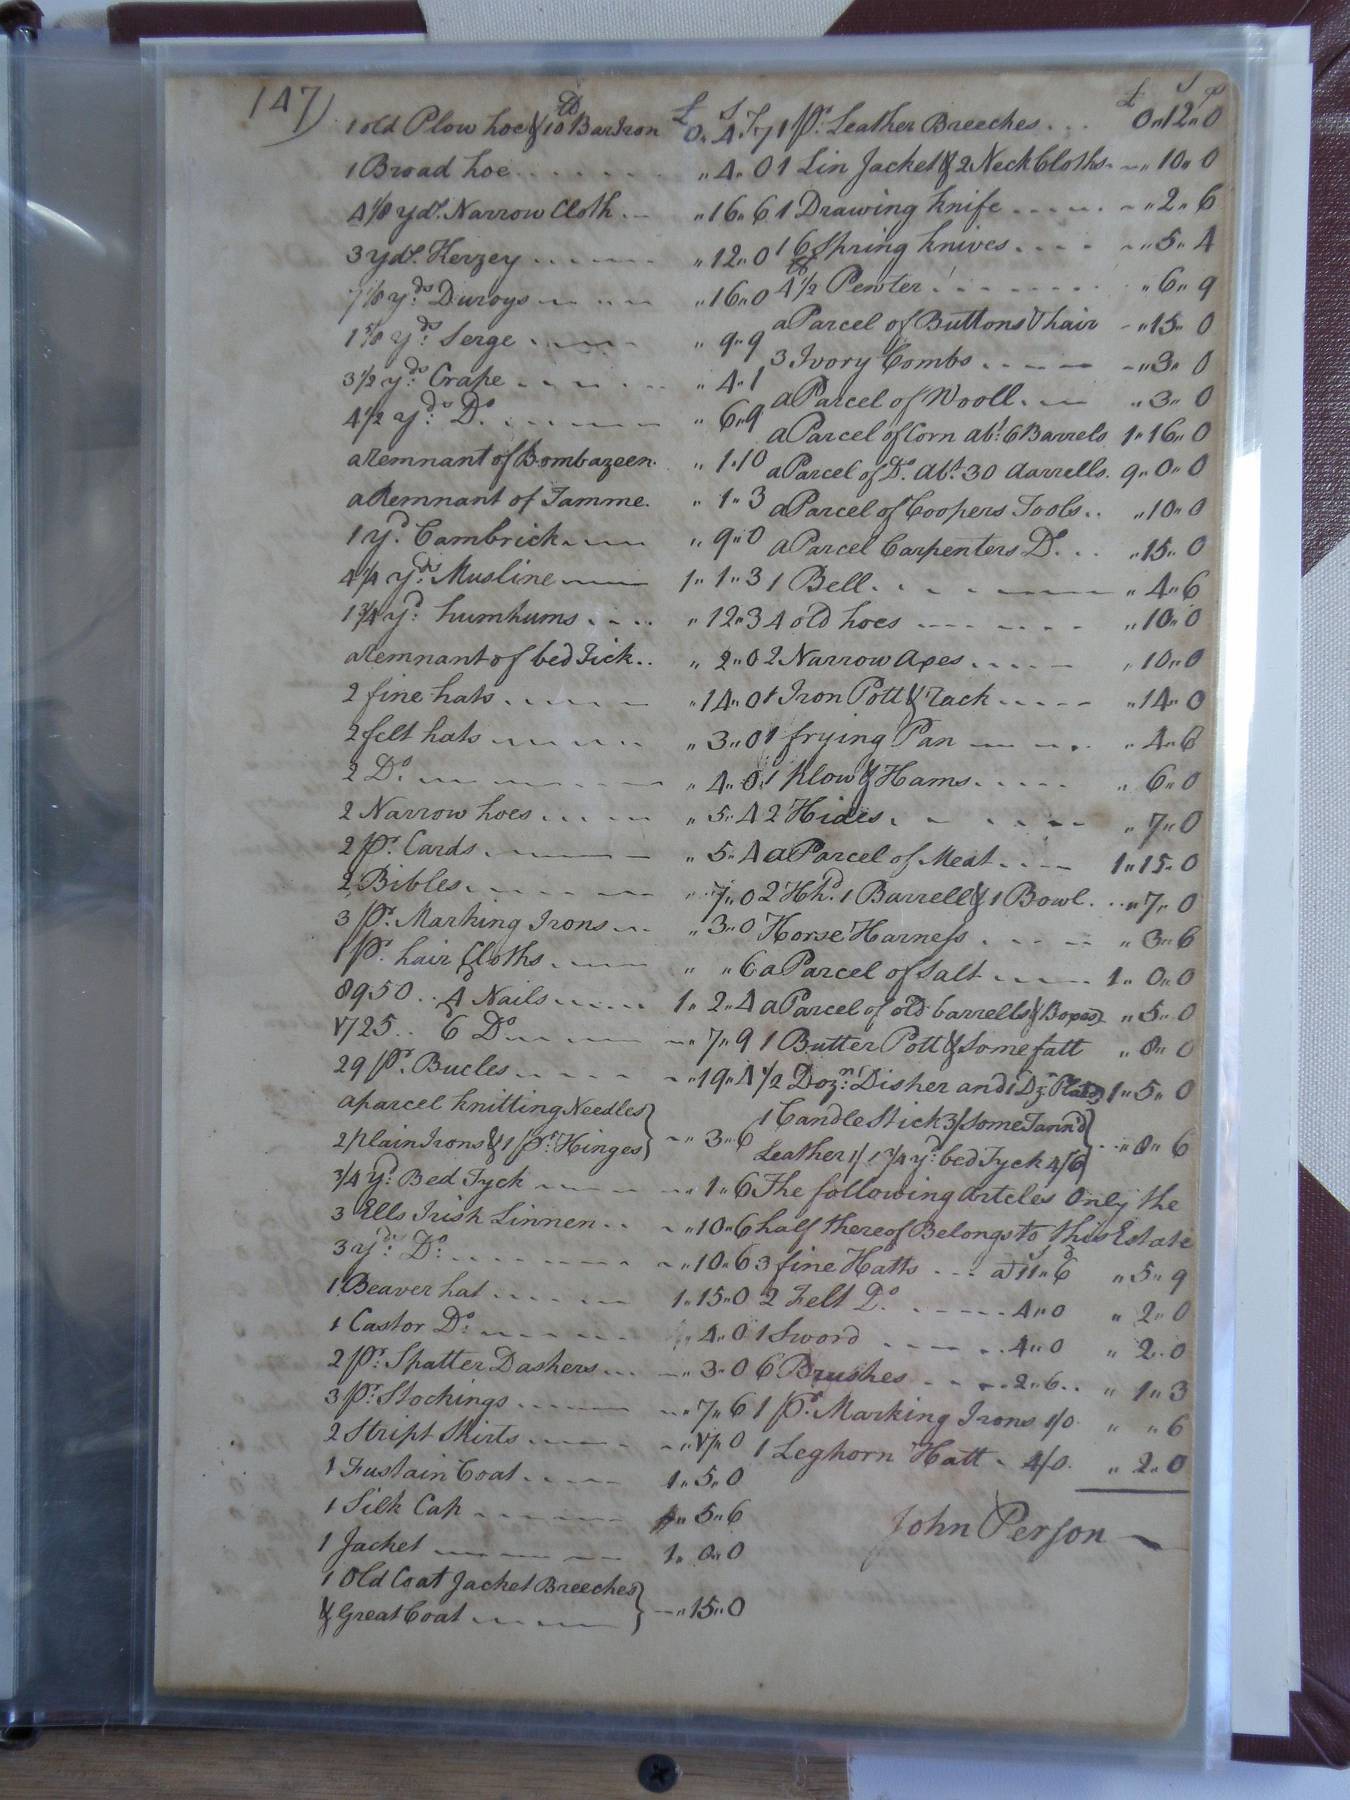 147)
£ S d
1 old Plow hoe & 10 lb Bar Iron 0„ 4„ 7
1 Broad hoe „ 4„ 0
4 1/8 yds. Narrow Cloth „ 16„ 6
3 yds. Kerzey „ 12„ 0
7 1/8 yds Duroys „ 16„ 0
1 5/8 yds. Serge „ 9„ 9
3 1/2 yds. Crape „ 4„ 1
4 1/2 yds. Do. „ 6„ 9
a Remnant of Bombazeen „ 1„ 10
a Remnant of Tamme „ 1„ 3
1 yd. Cambrick „ 9„ 0
4 1/4 yds. Musline 1„ 1„ 3
1 3/4 yd. humhums „ 12„ 3
a Remnant of bed Tick „ 2„ 0
2 fine hats „ 14„ 0
2 felt hats „ 3„ 0
2 Do. „ 4„ 0
2 Narrow hoes „ 5„ 4
2 pr. Cards „ 5„ 4
2 Bibles „ 7„ 0
3 pr. Marking Irons „ 3„ 0
1 pr. hair Cloths „ „ 6
8950 4d Nails 1„ 2„ 4
1725 6d Do „ 7„ 9
29 pr. Bucles „ 19„ 4
a parcel knitting Needles
2 plain Irons & 1 pr. Hinges } „ 3„ 6
3/4 yd. Bed Tyck „ 1„ 6
3 Ells Irish Linnen „ 10„ 6
3 yds. Do. „ 10„ 6
1 Beaver hat 1„ 15„ 0
1 Castor Do. „ 4„ 0
2 pr. Spatter Dashers „ 3„ 0
3 pr. Stockings „ 7„ 6
2 Stript Shirts „ 0
1 Fustain Coat 1„ 5„ 0
1 Silk Cap „ 5„ 6
1 Jacket 1„ 0„ 0
1 Old Coat Jacket Breeches
& Great Coat } „ 15„ 0
£ S P
1 pr. Leather Breeches 0„ 12„ 0
1 Lin Jacket & 2 Neck Cloths „ 10„ 0
1 Drawing knife „ 2„ 6
16 Spring knives „ 5„ 4
4 1/2 lb Pewter „ 6„ 9
a Parcel of Buttons & hair „ 15„ 0
3 Ivory Combs „ 3„ 0
a Parcel of Wooll „ 3„ 0
a Parcel of Corn abt. 6 Barrels 1„ 16„ 0
a Parcel of Do. abt. 30 Barrells 9„ 0„ 0
a Parcel of Coopers Tools „ 10„ 0
a Parcel Carpenters Do. „ 15„ 0
1 Bell „ 4„ 6
4 old hoes „ 10„ 0
2 Narrow Axes „ 10„ 0
1 Iron Pott & rack „ 14„ 0
1 frying Pan „ 4„ 6
1 plow & Hams „ 6„ 0
2 Hides „ 7„ 0
a Parcel of Meat 1„ 15„ 0
2 Hhd. 1 Barrell & 1 Bowl „ 7„ 0
Horse Harness „ 3„ 6
a Parcel of Salt 1„ 0„ 0
a Parcel of old barrells & Boxes „ 5„ 0
1 Butter Pott & some fatt „ 8„ 0
1/2 Dozn. Disher and 1 Dzn Plates 1„ 5„ 0
1 Candle Stick 3/ some Tannd
Leather 1/ 1 3/4 yd. bed Tyck 4/6 } „ 8„ 6
The following Arteles Only the
half thereof Belongs to this Estate
3 fine Hatts at 11s„ 6d „ 5„ 9
2 Felt Do. 4„ 0 „ 2„ 0
1 Sword 4„ 0 „ 2„ 0
6 Brushes 2„ 6 „ 1„ 3
1 pr. Marking Irons 1/0 „ „ 6
1 Leghorn Hatt 4/0 „ 2„ 0
John Person